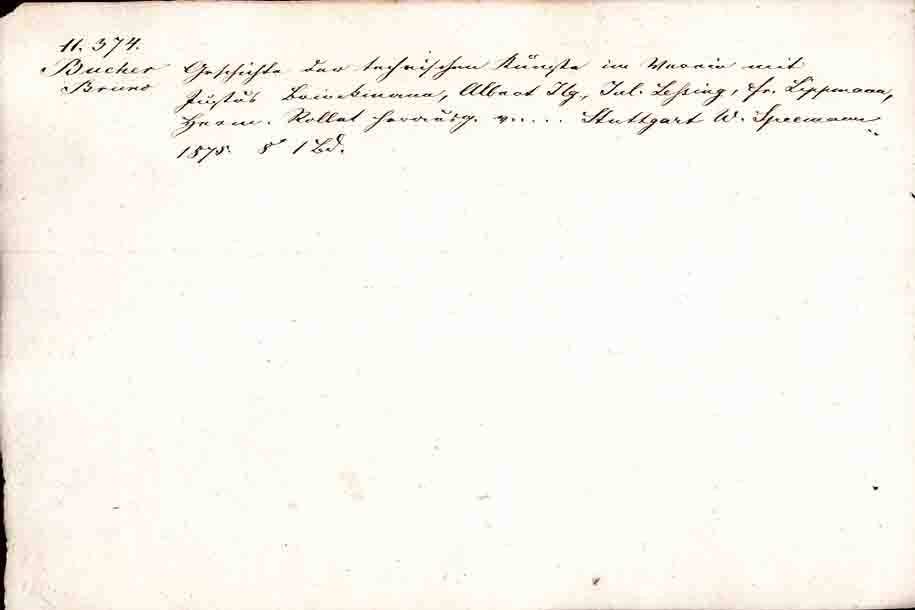 11.374.
Bucher Geschichte der technischen Künste im Verein mit
Bruno Justus Brinckmann, Albert Ilg, Jul. Leßing, Fr. Lippmann,
Herm. Rollet herausg. v. .... Stuttgart W. Speemann
1875. 8° 1 Bd.